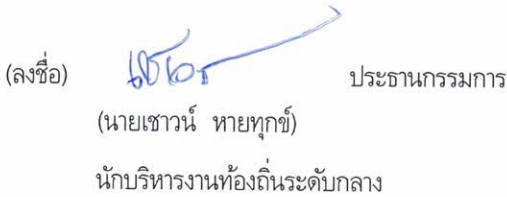 (ลงชื่อ) ประธานกรรมการ
(นายเชาวน์ หายทุกข์)
นักบริหารงานท้องถิ่นระดับกลาง